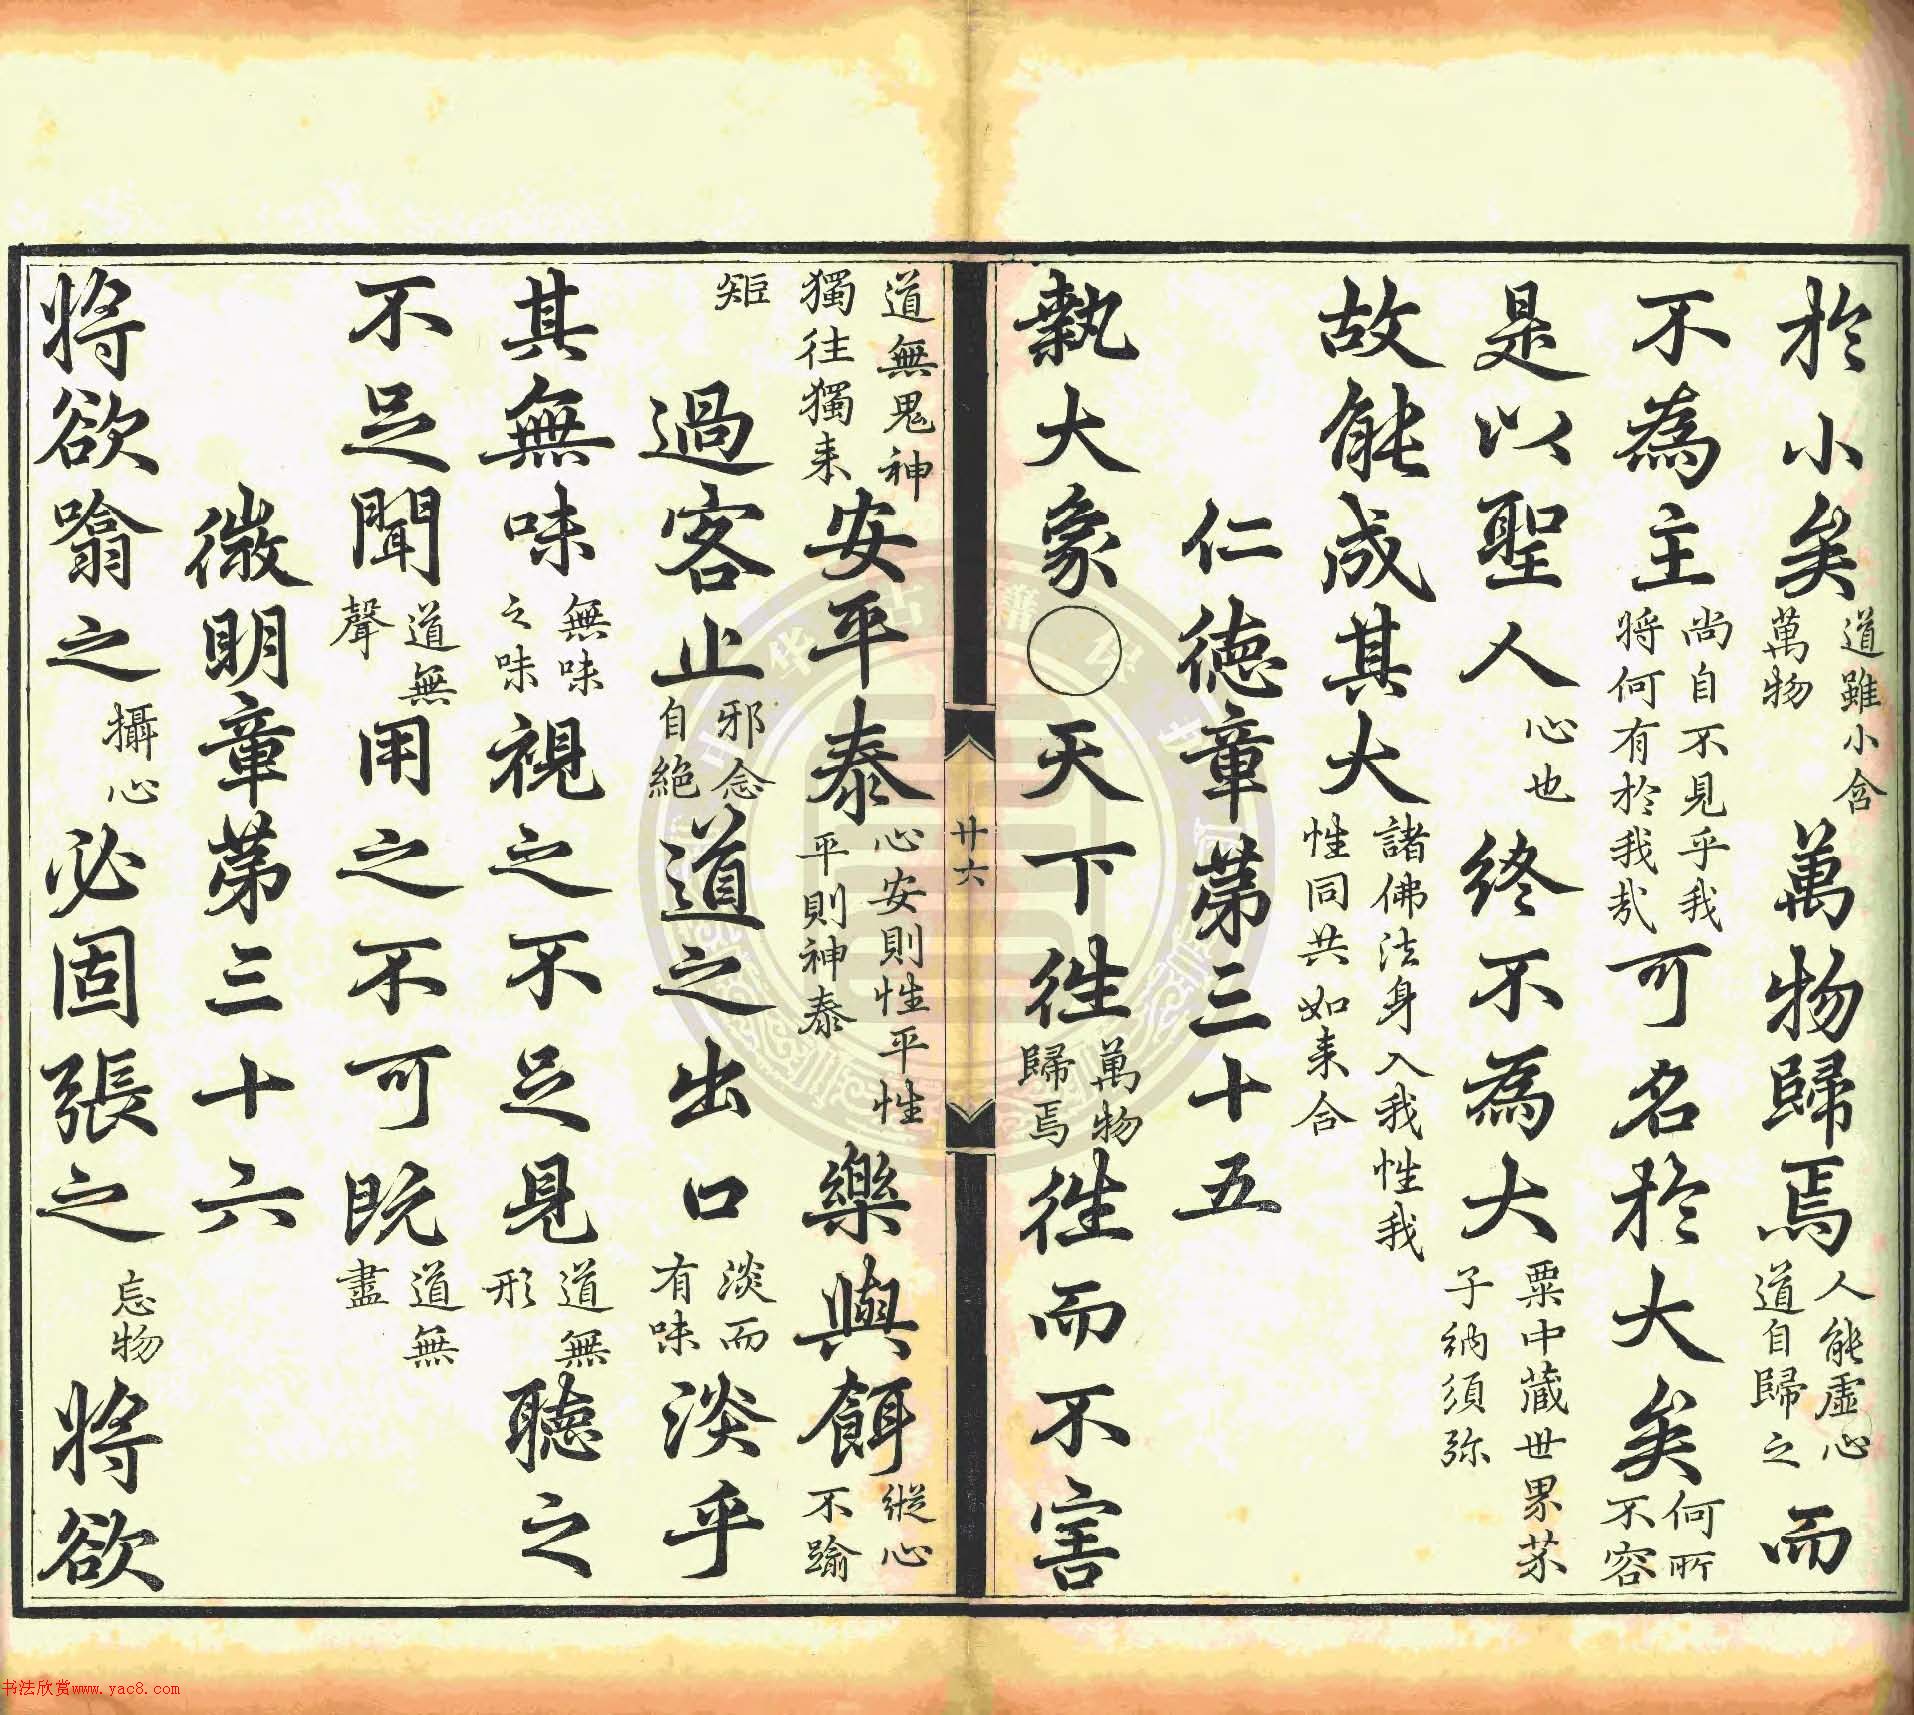 於小矣道雖小含萬物萬物歸焉人能虛心道自歸之而
不為主尚自不見乎我將何有於我哉可名於大矣何所不容
是以聖人心也終不為大粟中藏世界芥子納須弥
故能成其大諸佛法身入我性我性同共如来合
仁德章第三十五
執大象○天下往萬物歸焉往而不害
廿六
道無鬼神獨往獨来安平泰心安則性平性平則神泰樂與餌縱心不踰
矩過客止邪念自絶道之出口淡而有味淡乎
其無味無味之味視之不足見道無形聽之
不足聞道無聲用之不可既道無盡
微明章第三十六
將欲噏之攝心必固張之忘物將欲
书法欣赏www.yac8.com